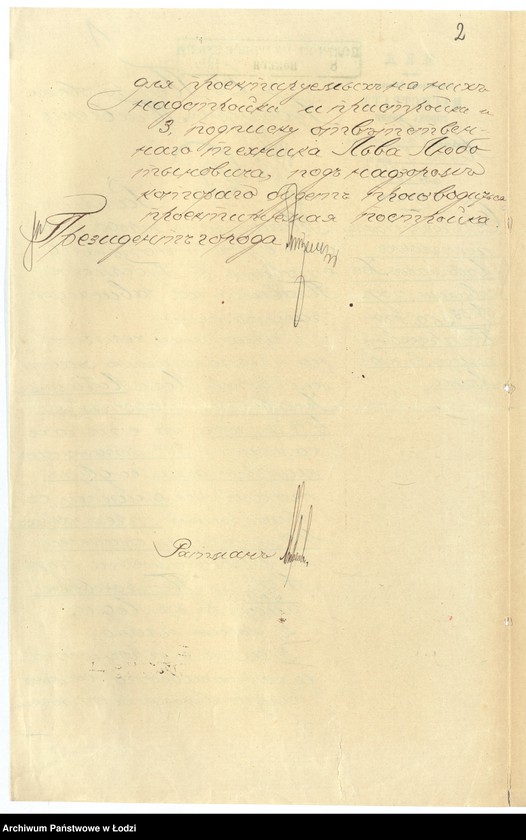 2
для проектируемыхъ на нихъ
надстройки и пристройки и
3, подписку отвѣтствен-
наго техника Льва Любо
тыновича, подъ надзоромъ
котораго будетъ производиться
проектируемая постройка.
Президентъ города
Ратманъ
Archiwum Państwowe w Łodzi